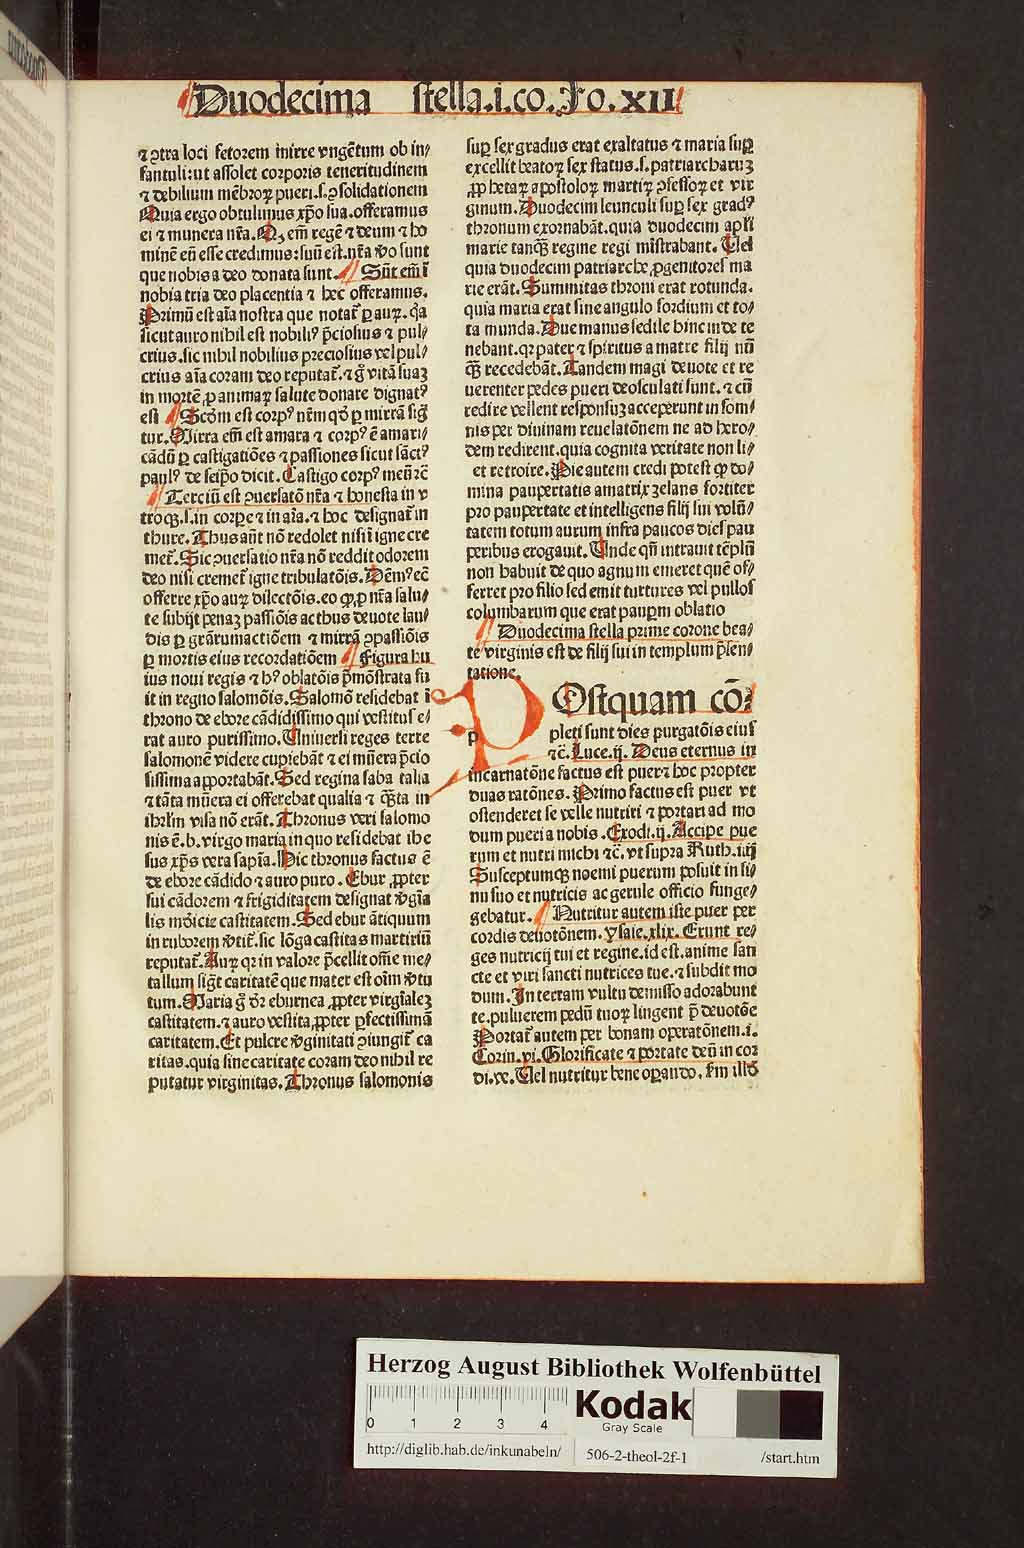 Duodecima stella.i.co. Fo.XII
⁊ ꝯtra loci fetorem inirre vngētum ob in⸗
fantuli:ut assolet corporis teneritudinem
⁊ debilium mēbroꝝ pueri.s.ꝯsolidationem
Quia ergo obtulimus xp̄o sua.offeramus
ei ⁊ munera nr̄a. Qꝫ em̄ regē ⁊ deum ⁊ ho
minē eū esse credimus:suū est.nr̄a v̄o sunt
que nobis a deo donata sunt. Sūt em̄ ī
nobia tria deo placentia ⁊ hec offeramus.
Primū est aīa nostra que notat᷑ ꝑ auꝝ. qꝛ
sicut auro nihil est nobiliꝰ p̄ciosius ⁊ pul⸗
crius.sic nihil nobilius preciosius vel pul⸗
crius aīa coram deo reputat᷑. ⁊ g̊ vitā suaꝫ
in mortē ꝓ animaꝝ salute donare dignatꝰ
est Scd̄m est corpꝰ nr̄m qd̄ ꝑ mirrā siḡ
tur. Mirra em̄ est amara ⁊ corpꝰ ē amari⸗
cādū ꝑ castigatiōes ⁊ passiones sicut sāctꝰ
paulꝰ de seip̄o dicit. Castigo corpꝰ meū ⁊c̄
Terciū est ꝯuersatō nr̄a ⁊ honesta in v
troqꝫ.s.in corꝑe ⁊ in aīa. ⁊ hoc designat᷑ in
thure. Thus aūt nō redolet nisi ī igne cre
met᷑. Sic ꝯuersatio nr̄a nō reddit odorem
deo nisi cremet᷑ igne tribulatōis. Dēmꝰ ec̄
offerre xp̄o auꝝ dilectōis.eo qꝫ ꝓ nr̄a salu⸗
te subijt penaꝫ passiōis actbus deuote lau⸗
dis ꝑ grāꝝumactiōem ⁊ mirrā ꝯpassiōis
ꝑ mortis eius recordatiōem Figura hu
ius noui regis ⁊ hꝰ oblatōis p̄mōstrata fu
it in regno salomōis. Salomō residebat ī
throno de ebore cādidissimo qui vestitus e⸗
rat auro purissimo. Uniuersi reges terre
salomonē videre cupiebāt ⁊ ei mūera p̄cio
sissima apportabāt. Sed regina saba talia
⁊ tāta mūera ei offerebat qualia ⁊ q̄ta in
ihrl̄m visa nō erāt. Thronus veri salomo
nis ē.b.virgo maria in quo residebat ihe
sus xp̄s vera sapīa. Hic thronus factus ē
de ebore cādido ⁊ auro puro. Ebur ꝓpter
sui cādorem ⁊ frigiditatem designat v̄gīa
lis mōicie castitatem. Sed ebur ātiquum
in ruborem v̄tit᷑.sic lōga castitas martiriū
reputat᷑. Auꝝ qꝛ in valore p̄cellit om̄e me⸗
tallum sigt̄ caritatē que mater est oīm v̄tu
tum. Maria g̊ dr̄ eburnea ꝓpter virgīaleꝫ
castitatem. ⁊ auro vestita ꝓpter ꝑfectissimā
caritatem. Et pulcre v̄ginitati ꝯiungit᷑ ca
ritas.quia sine caritate coram deo nihil re
putatur virginitas. Thronus salomonis
suꝑ sex gradus erat exaltatus ⁊ maria suꝑ
excellit beatoꝝ sex status.s.patriarcharuꝫ
ꝓphetaꝝ apostoloꝝ martiꝝ ꝯfessoꝝ et vir
ginum. Duodecim leunculi suꝑ sex gradꝰ
thronum exornabāt.quia duodecim apl̄i
marie tanqꝫ regine regi mīstrabant. Uel
quia duodecim patriarche ꝓgenitores ma
rie erāt. Summitas throni erat rotunda.
quia maria erat sine angulo sordium et to⸗
ta munda. Due manus sedile hinc inde te
nebant.qꝛ pater ⁊ spiritus a matre filij nū
qꝫ recedebāt. Tandem magi deuote et re
uerenter pedes pueri deosculati sunt. ⁊ cū
redire vellent responsuꝫ acceperunt in som⸗
nis per diuinam reuelatōnem ne ad hero⸗
dem redirent.quia cognita veritate non li⸗
et retroire. Pie autem credi potest qꝫ do⸗
mina paupertatis amatrix zelans fortiter
pro paupertate et intelligens filij sui volū⸗
tatem totum aurum infra paucos dies pau
peribus erogauit. Unde qn̄ intrauit tēplū
non habuit de quo agnum emeret quē of⸗
ferret pro filio sed emit turtures vel pullos
columbarum que erat pauꝑm oblatio
Duodecima stella prime corone bea⸗
te virginis est de filij sui in templum p̄sen⸗
tatione.
POstquam cō⸗
p
pleti sunt dies purgatōis eius
⁊c̄. Luce.ij. Deus eternus in
incarnatōne factus est puer ⁊ hoc propter
duas ratōnes. Primo factus est puer vt
ostenderet se velle nutriri ⁊ portari ad mo
dum pueri a nobis. Exodi.ij. Accipe pue
rum et nutri michi ⁊c̄. vt supra Ruth.iiij
Susceptumqꝫ noemi puerum posuit in si⸗
nu suo et nutricis ac gerule officio funge⸗
gebatur. Nutritur autem iste puer per
cordis deuotōnem. ysaie.xlix. Erunt re⸗
ges nutricij tui et regine.id est.anime san
cte et viri sancti nutrices tue. ⁊ subdit mo
dum. In terram vultu demisso adorabunt
te.puluerem pedū tuoꝝ lingent p̄ deuotōe
Portat᷑ autem per bonam operatōnem.i.
Corin.vi. Glorificate ⁊ portate deū in cor
di.ve. Uel nutritur bene oꝑando. sm̄ illō
Herzog August Bibliothek Wolfenbüttel
0 1 2 3 4
Kodak
Gray Scale
http://diglib.hab.de/inkunabeln/ 506-2-theol-2f-1 /start.htm